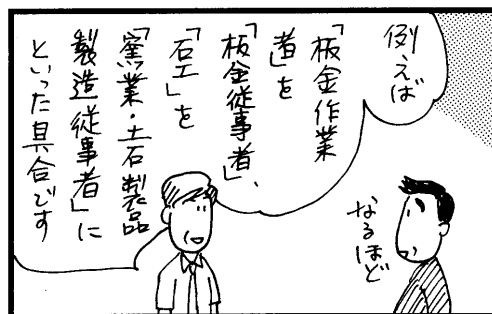 例えば
「板金作業
者」を
「板金従事者」、
「石工」を
「窯業・土石製品
製造従事者」に
といった具合です
なるほど